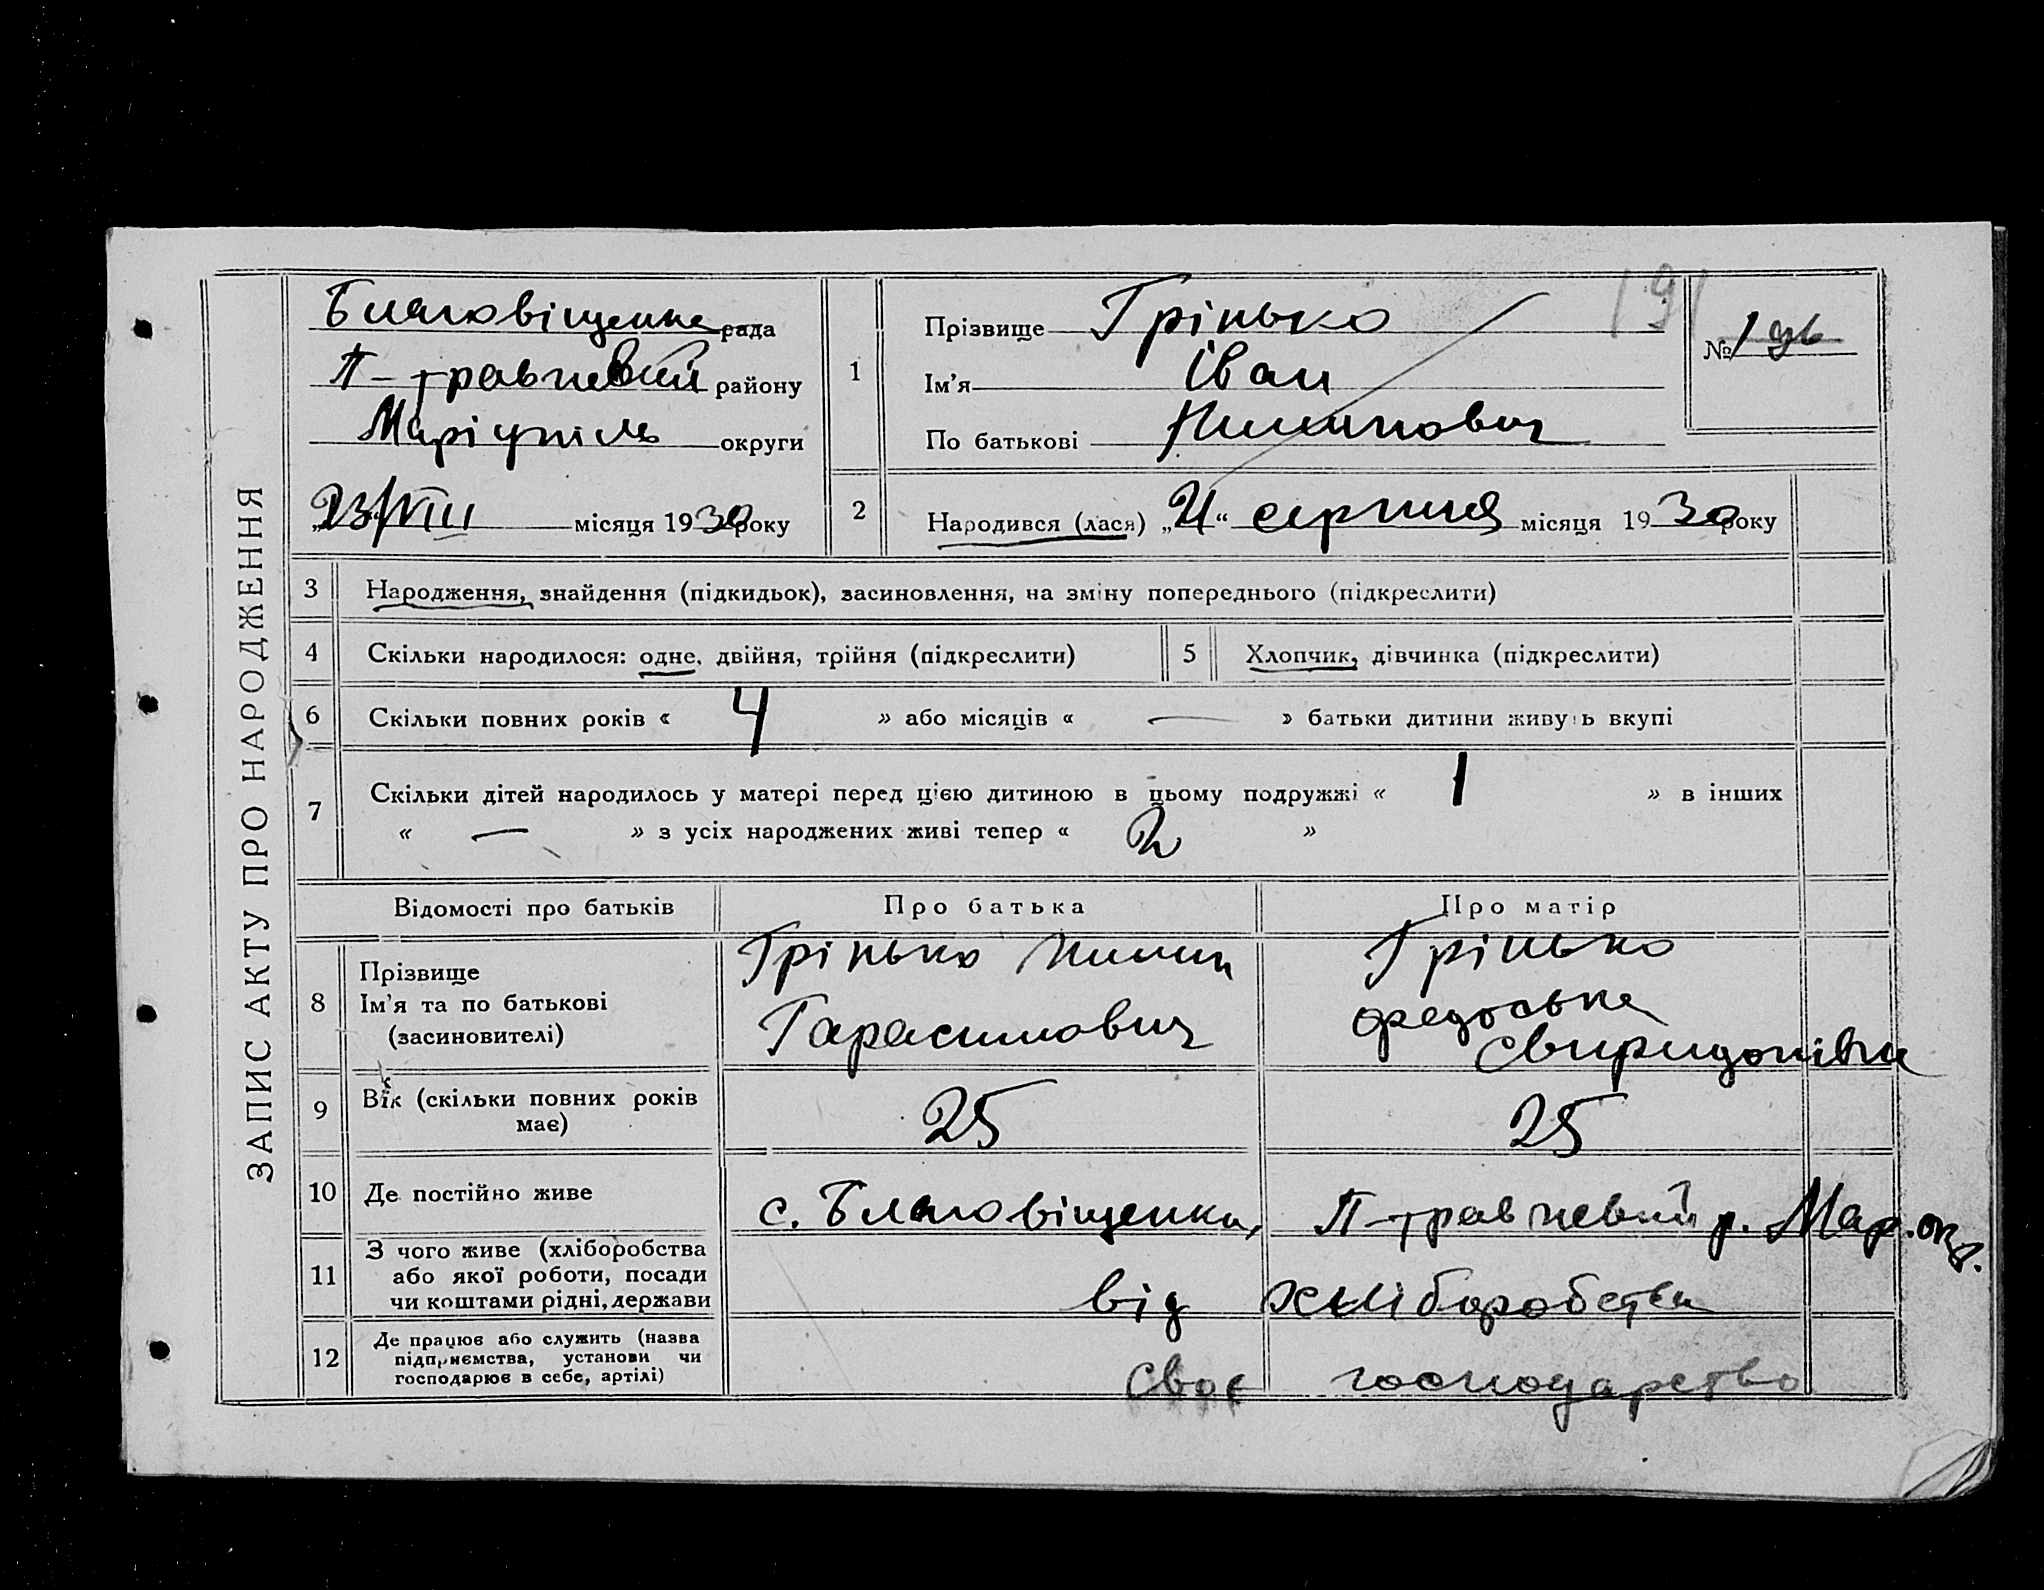 ЗАПИС АКТУ ПРО НАРОДЖЕННЯ
Благовіщенка рада
П-травневий району
Маріупіль округи
„23/VIII місяця 1930 року
1
Прізвище Грінько
Ім'я Іван
По батькові Пилипович
191
№
2
Народився (лася) „21“ серпня місяця 1930 року
3 Народження, знайдення (підкидьок), засиновлення, на зміну попереднього (підкреслити)
4 Скільки народилося: одне, двійня, трійня (підкреслити)
5 Хлопчик, дівчинка (підкреслити)
6 Скільки повних років « 4 » або місяців « — » батьки дитини живуть вкупі
7 Скільки дітей народилось у матері перед цією дитиною в цьому подружжі « 1 » в інших
« — » з усіх народжених живі тепер « 2 »
Відомості про батьків Про батька Про матір
8
Прізвище
Ім'я та по батькові
(засиновителі)
Грінько Пилип
Гарасимович
Грінько
Федоська
Свиридонівна
9
Вік (скільки повних років
має)
25 25
10 Де постійно живе с. Благовіщенка, П-травневий р. Мар. окр.
11
З чого живе (хліборобства
або якої роботи, посади
чи коштами рідні, держави
від хліборобства
12
Де працює або служить (назва
підприємства, установи чи
господарює в себе, артілі)
своє господарство